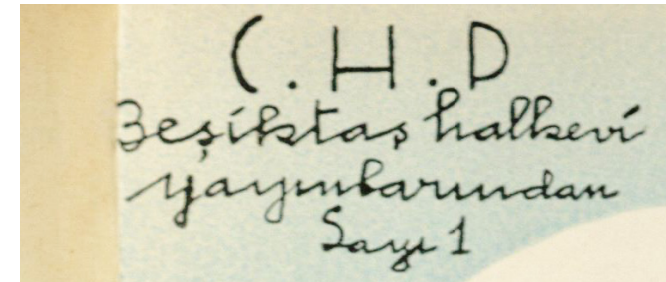 C.H.P
Beşiktaş halkevi
yayınlarından
Sayı 1